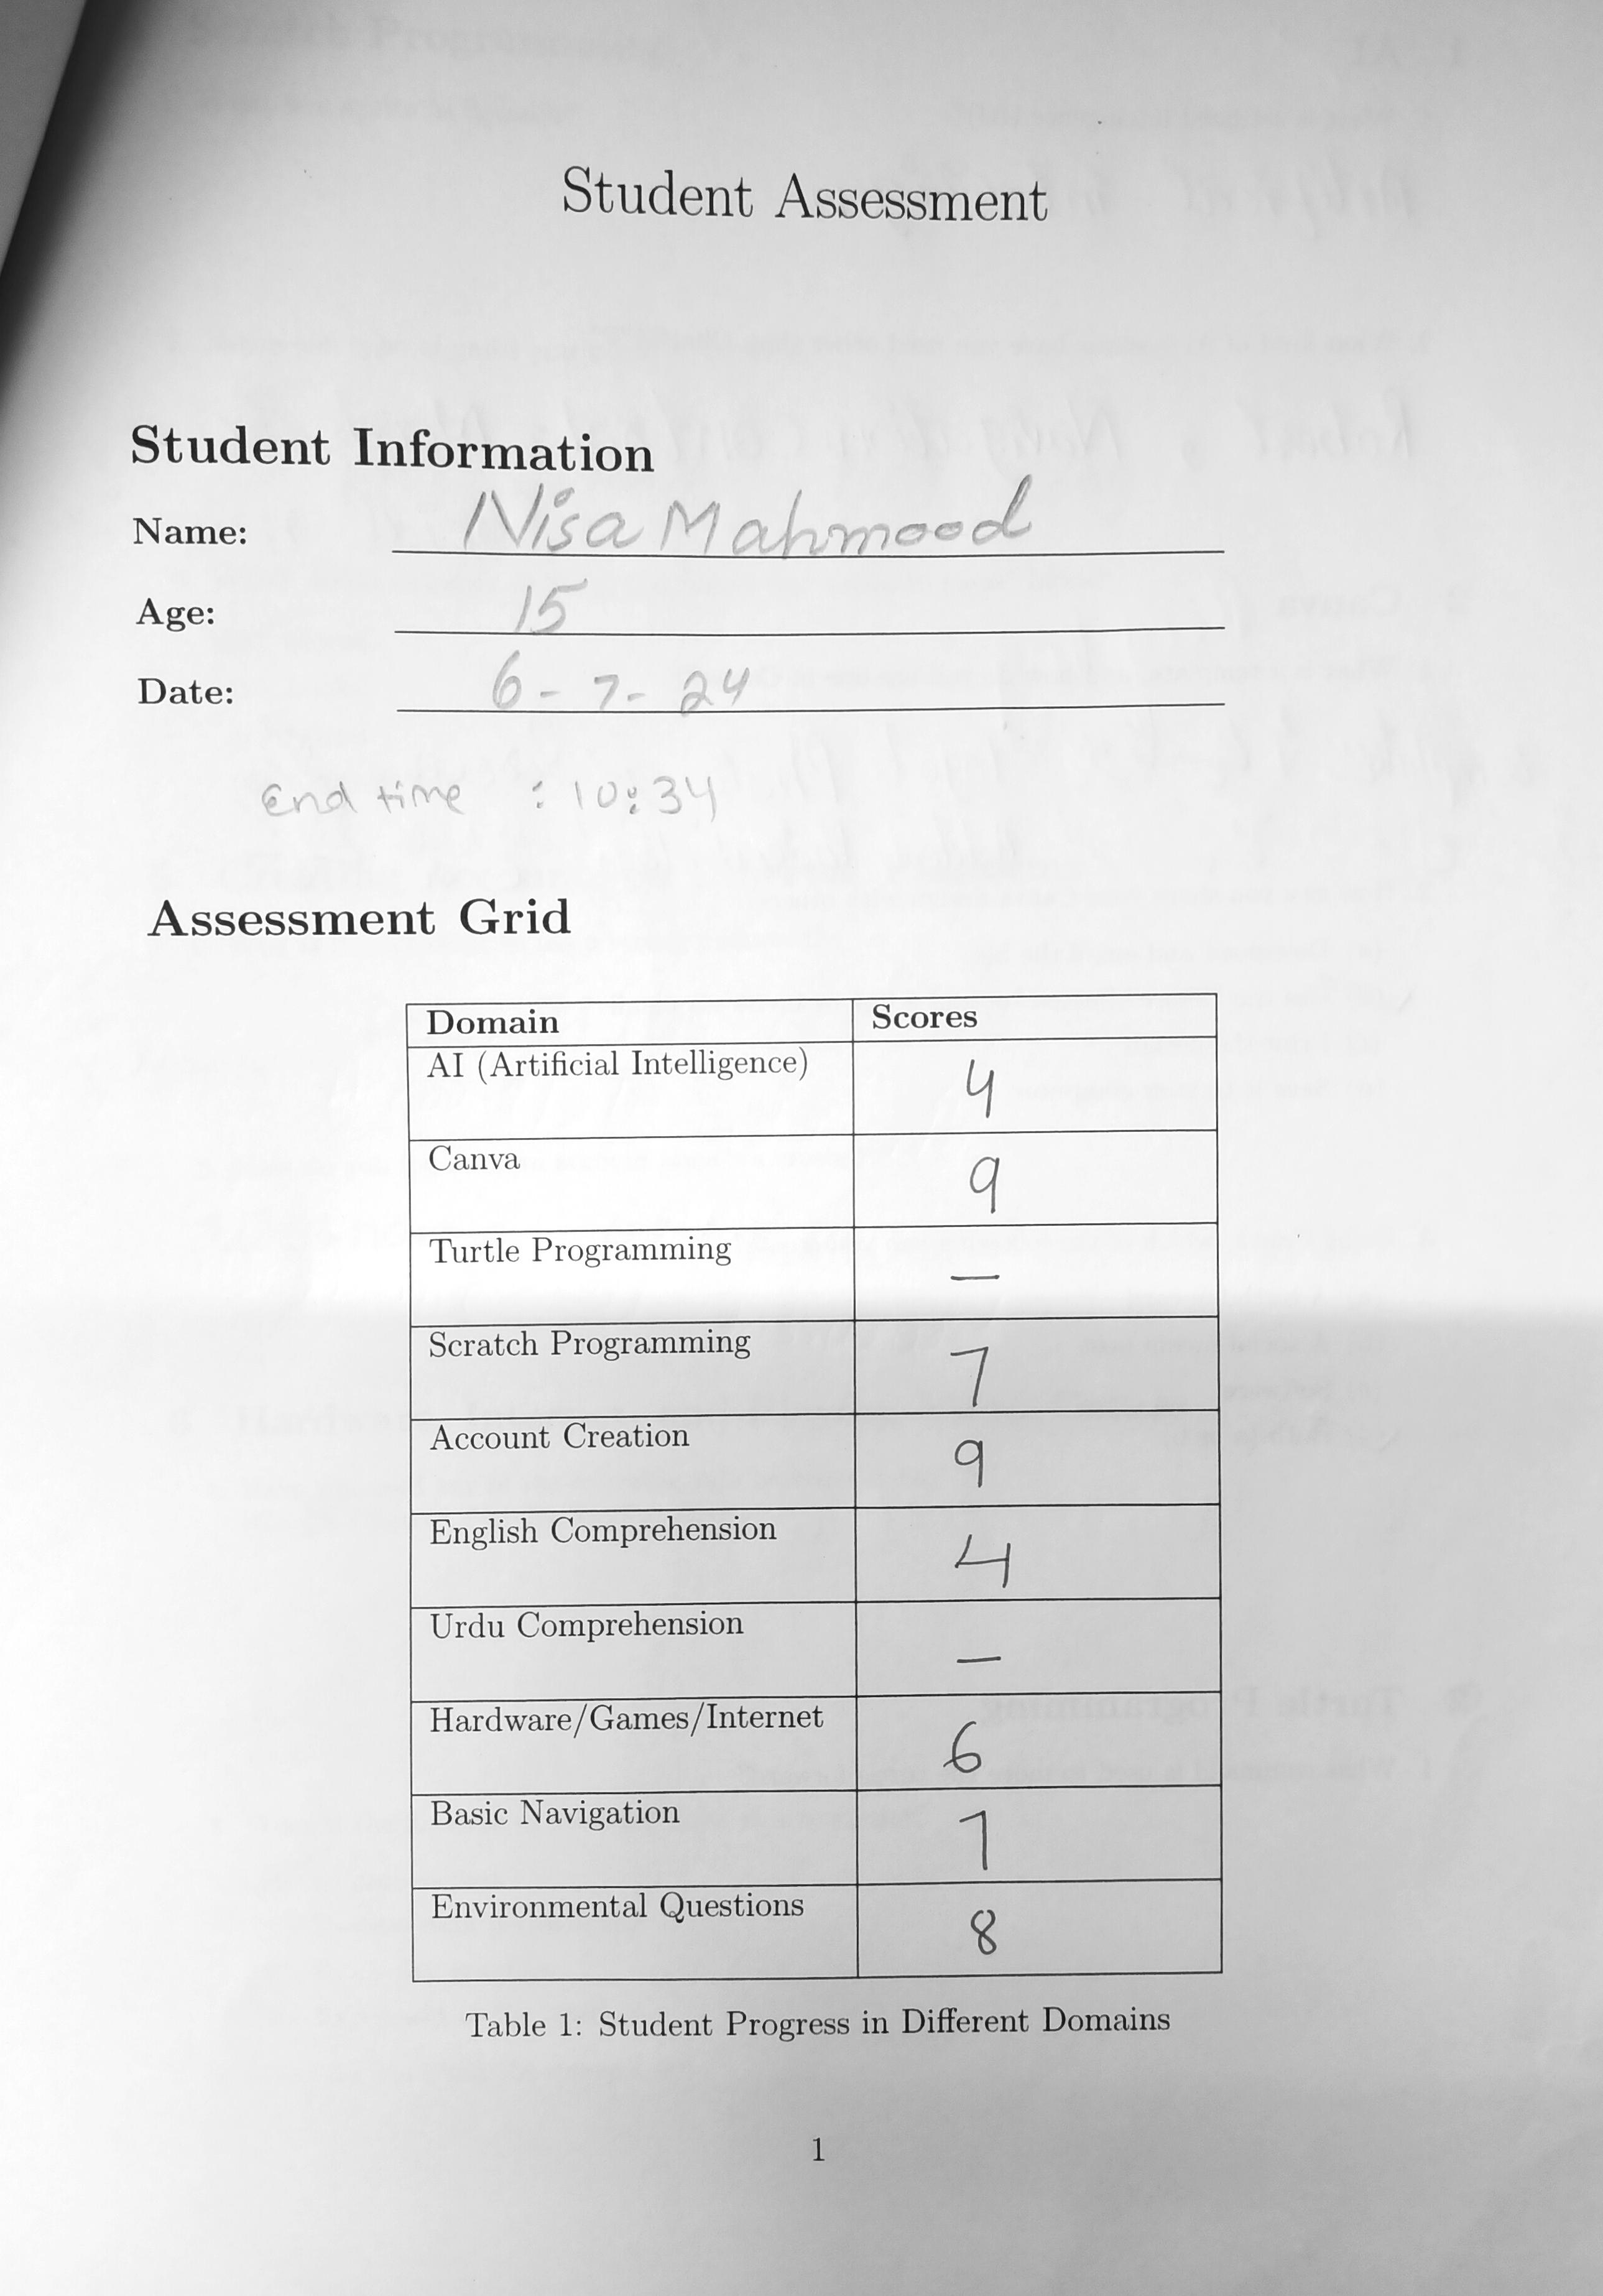 Student Assessment
Student Information
Name: Nisa Mahmood
Age: 15
Date: 6 - 7 - 24
End time : 10:34
Assessment Grid
Domain Scores
AI (Artificial Intelligence) 4
Canva 9
Turtle Programming —
Scratch Programming 7
Account Creation 9
English Comprehension 4
Urdu Comprehension —
Hardware/Games/Internet 6
Basic Navigation 7
Environmental Questions 8
Table 1: Student Progress in Different Domains
1